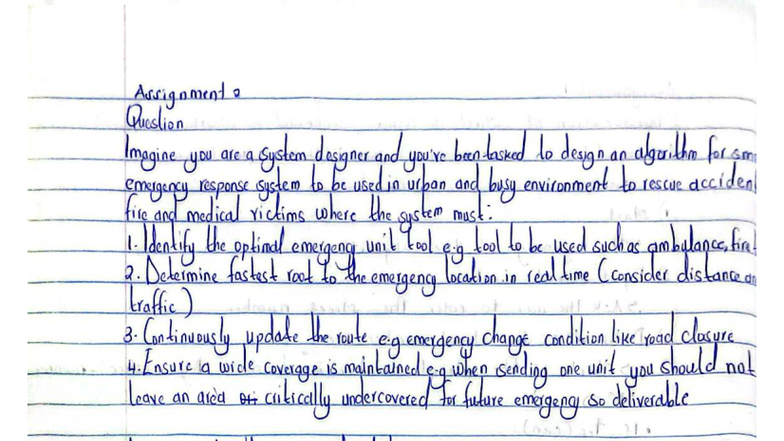 Assignment 2
Question
Imagine you are a system designer and you've been tasked to design an algorithm for sm
emergency response system to be used in urban and busy environment to rescue acciden
fire and medical victims where the system must:
1. Identify the optimal emergency unit tool e.g tool to be used such as ambulance, fire
2. Determine fastest root to the emergency location in real time (consider distance an
traffic)
3. Continuously update the route e.g emergency change condition like road closure
4. Ensure a wide coverage is maintained e.g when sending one unit you should not
leave an area critically undercovered for future emergengy so deliverable